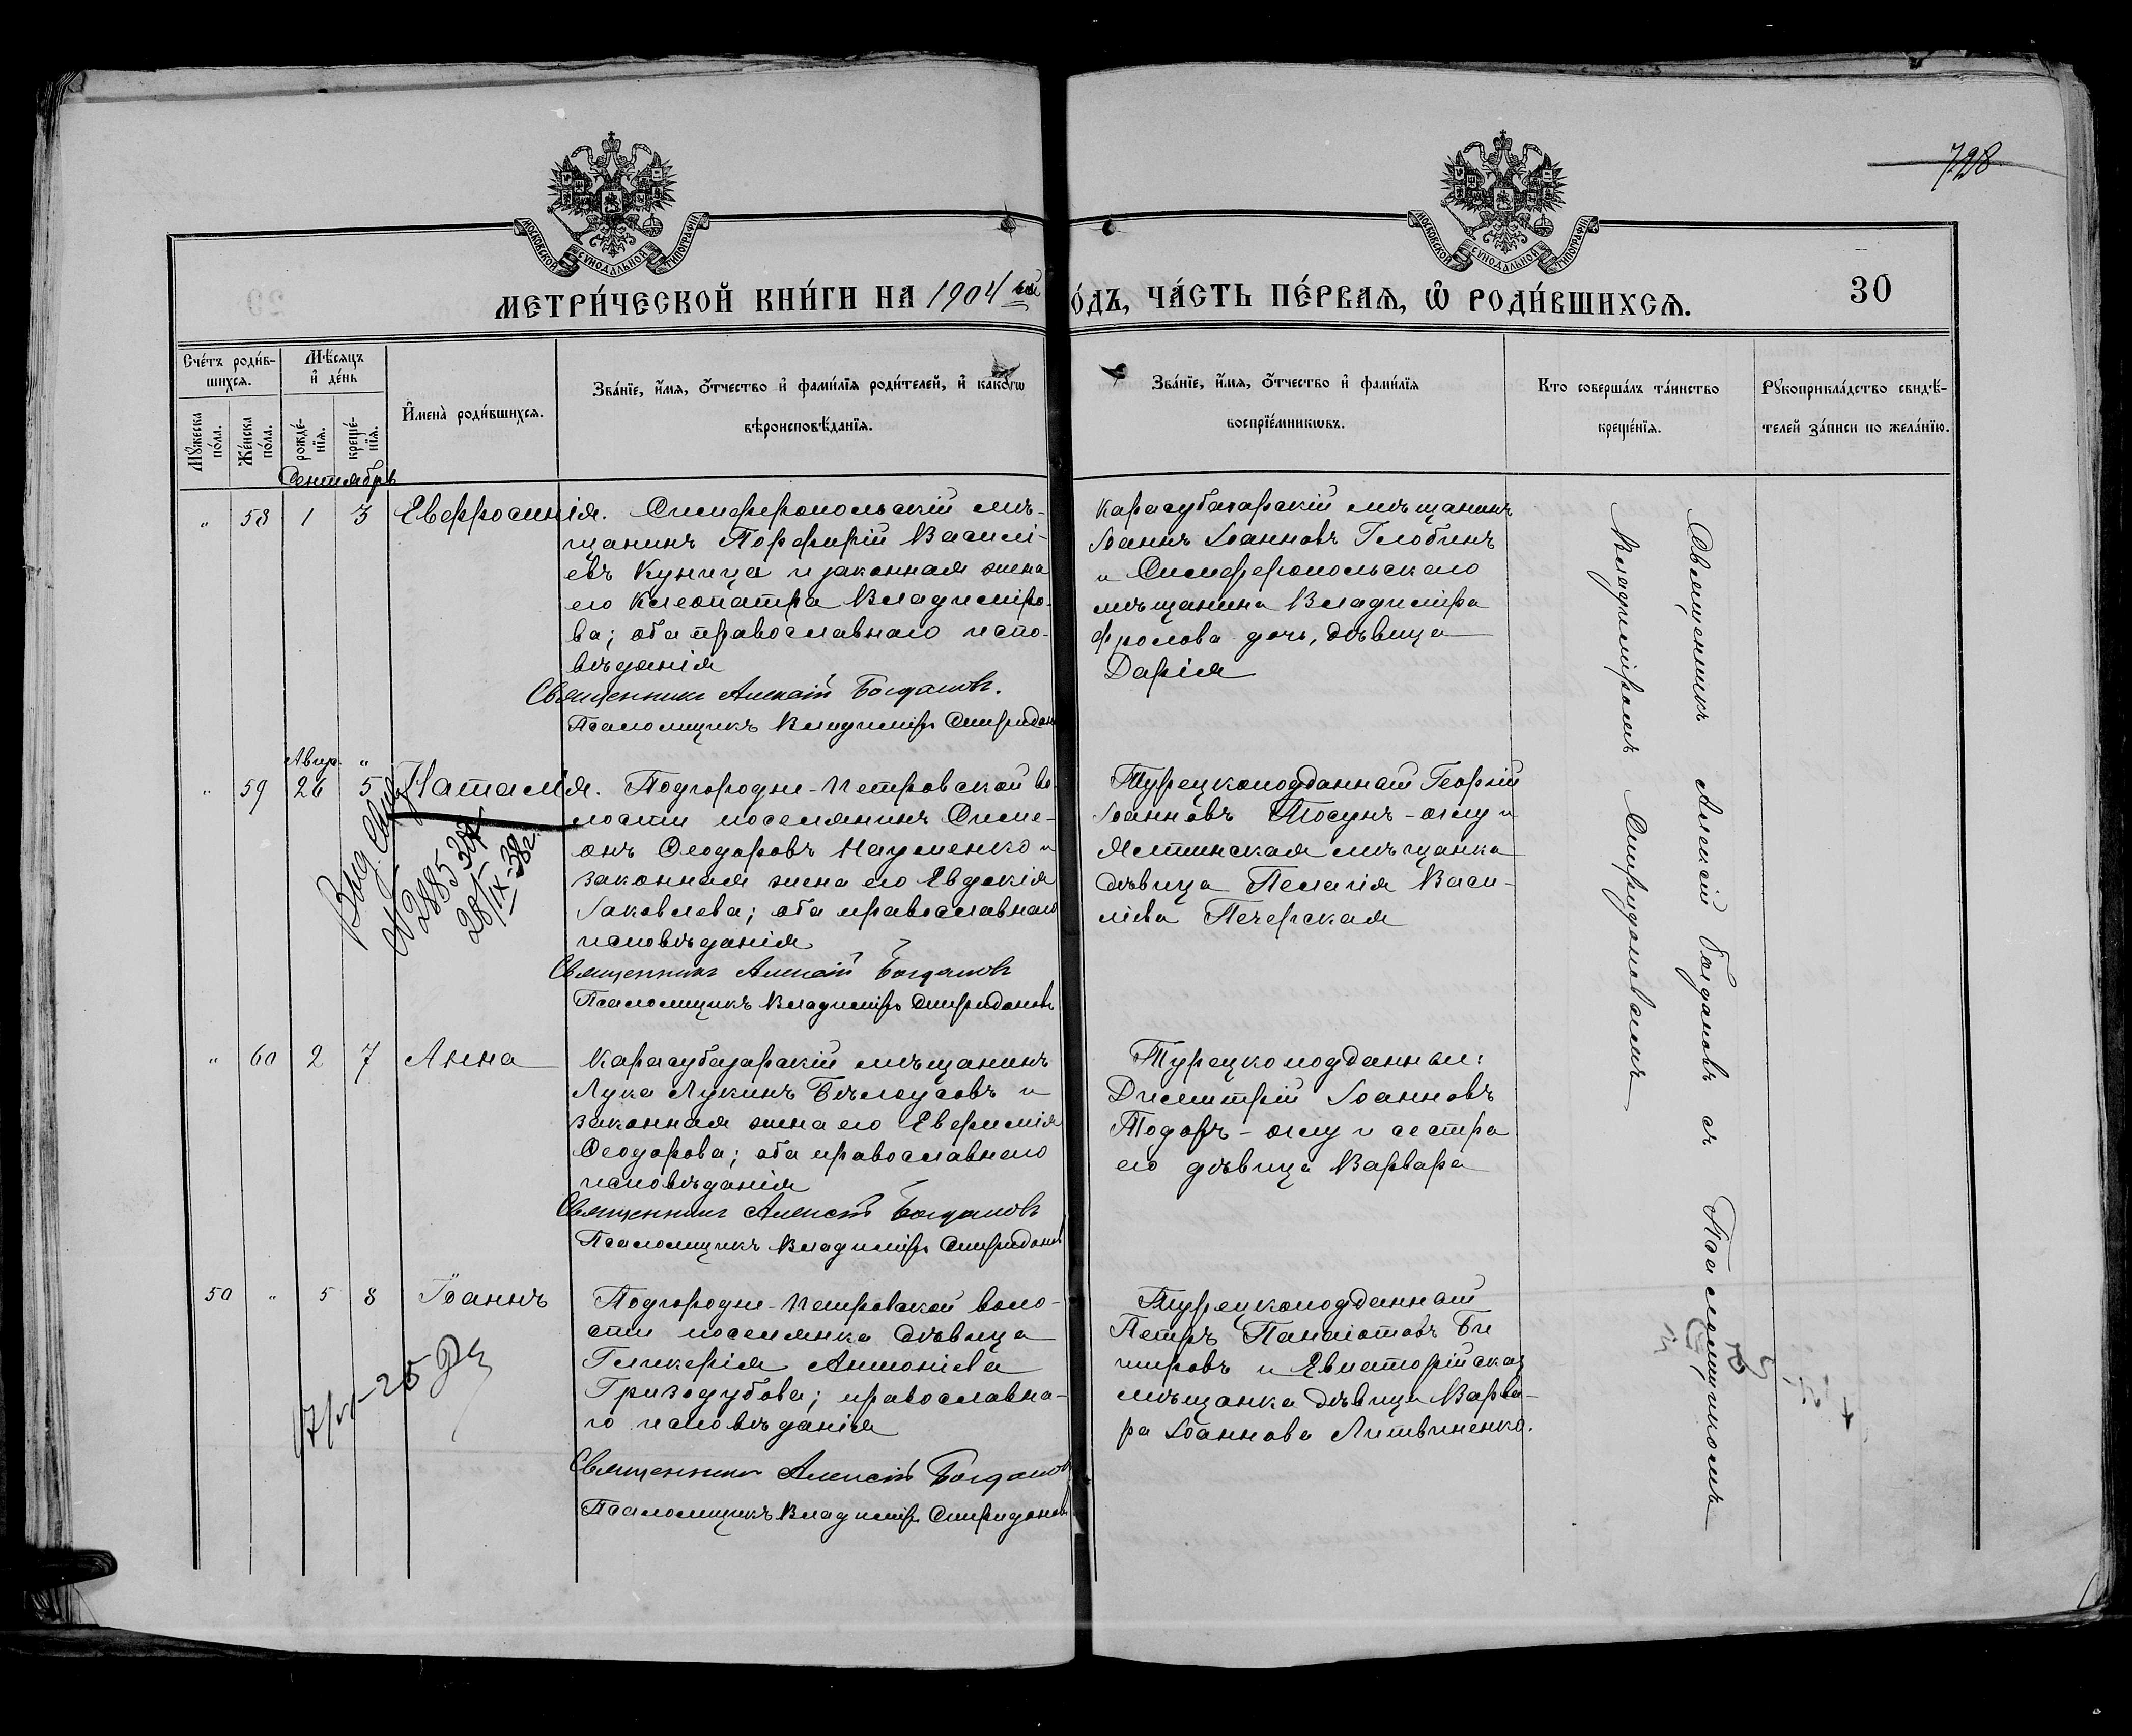 728
МОСКОВСКОЙ СѴНОДАЛЬНОЙ ТИПОГРАФІИ
МОСКОВСКОЙ СѴНОДАЛЬНОЙ ТИПОГРАФІИ
МЕТРИ́ЧЕСКОЙ КНИ́ГИ НА 1904 ый
О́ДЪ, ЧА́СТЬ ПЕ́РВАѦ, Ѡ РОДИ́ВШИХСѦ.
30
Сче́тъ роди́в-
шихсѧ.
Мѣ́сѧцъ
и҆ де́нь
Мꙋ́жеска
по́ла.
Же́нска
по́ла.
рожде́-
нїѧ.
креще́-
нїѧ.
И҆мена̀ роди́вшихсѧ.
Зва́нїе, и҆́мѧ, ѻ҆́тчество и҆ фами́лїѧ роди́телей, и҆ како́гѡ
вѣроисповѣ́данїѧ.
Зва́нїе, и҆́мѧ, ѻ҆́тчество и҆ фами́лїѧ
воспрїе́мникѡвъ.
Кто соверша́лъ та́инство
креще́нїѧ.
Рꙋкоприкла́дство свидѣ́-
телей за́писи по жела́нїю.
Сентябрь
" 58 1 3 Евфросинія. Симферопольскій мѣ-
щанинъ Порфирій Василі-
евъ Куница и законная жена
его Клеопатра Владиміро-
ва; оба православнаго испо-
вѣданія
Священникъ Алексій Богдановъ.
Псаломщикъ Владиміръ Спиридоновъ
Карасубазарскій мѣщанинъ
Іоаннъ Іоанновъ Глобинъ
и Симферопольскаго
мѣщанина Владиміра
Фролова дочь, дѣвица
Дарія
Авгус. "
" 59 26 5 Наталія. Подгородне-Петровской во-
лости поселянинъ Симе-
онъ Ѳеодоровъ Науменко и
законная жена его Евдокія
Іаковлева; оба православнаго
исповѣданія
Священникъ Алексій Богдановъ
Псаломщикъ Владиміръ Спиридоновъ
Выд. Свид.
№ 2885
28/IX-38г.
Турецкоподданный Георгій
Іоанновъ Тосунъ-оглу и
Ялтинская мѣщанка
дѣвица Пелагія Васи-
ліева Печерская
" 60 2 7 Анна Карасубазарскій мѣщанинъ
Лука Лукинъ Бѣлоусовъ и
законная жена его Евфимія
Ѳеодорова; оба православнаго
исповѣданія
Священникъ Алексій Богдановъ
Псаломщикъ Владиміръ Спиридоновъ
Турецкоподданные:
Димитрій Іоанновъ
Тодоръ-оглу и сестра
его дѣвица Варвара
50 " 5 8 Іоаннъ Подгородне-Петровской воло-
сти поселянка дѣвица
Гликерія Антоніева
Гризодубова; православна-
го исповѣданія
Священникъ Алексій Богдановъ
Псаломщикъ Владиміръ Спиридоновъ
Турецкоподданный
Петръ Панаіотовъ Би
тировъ и Евпаторійская
мѣщанка дѣвица Варва-
ра Іоаннова Литвиненко.
Священникъ Алексій Богдановъ съ Псаломщикомъ
Владиміромъ Спиридоновымъ